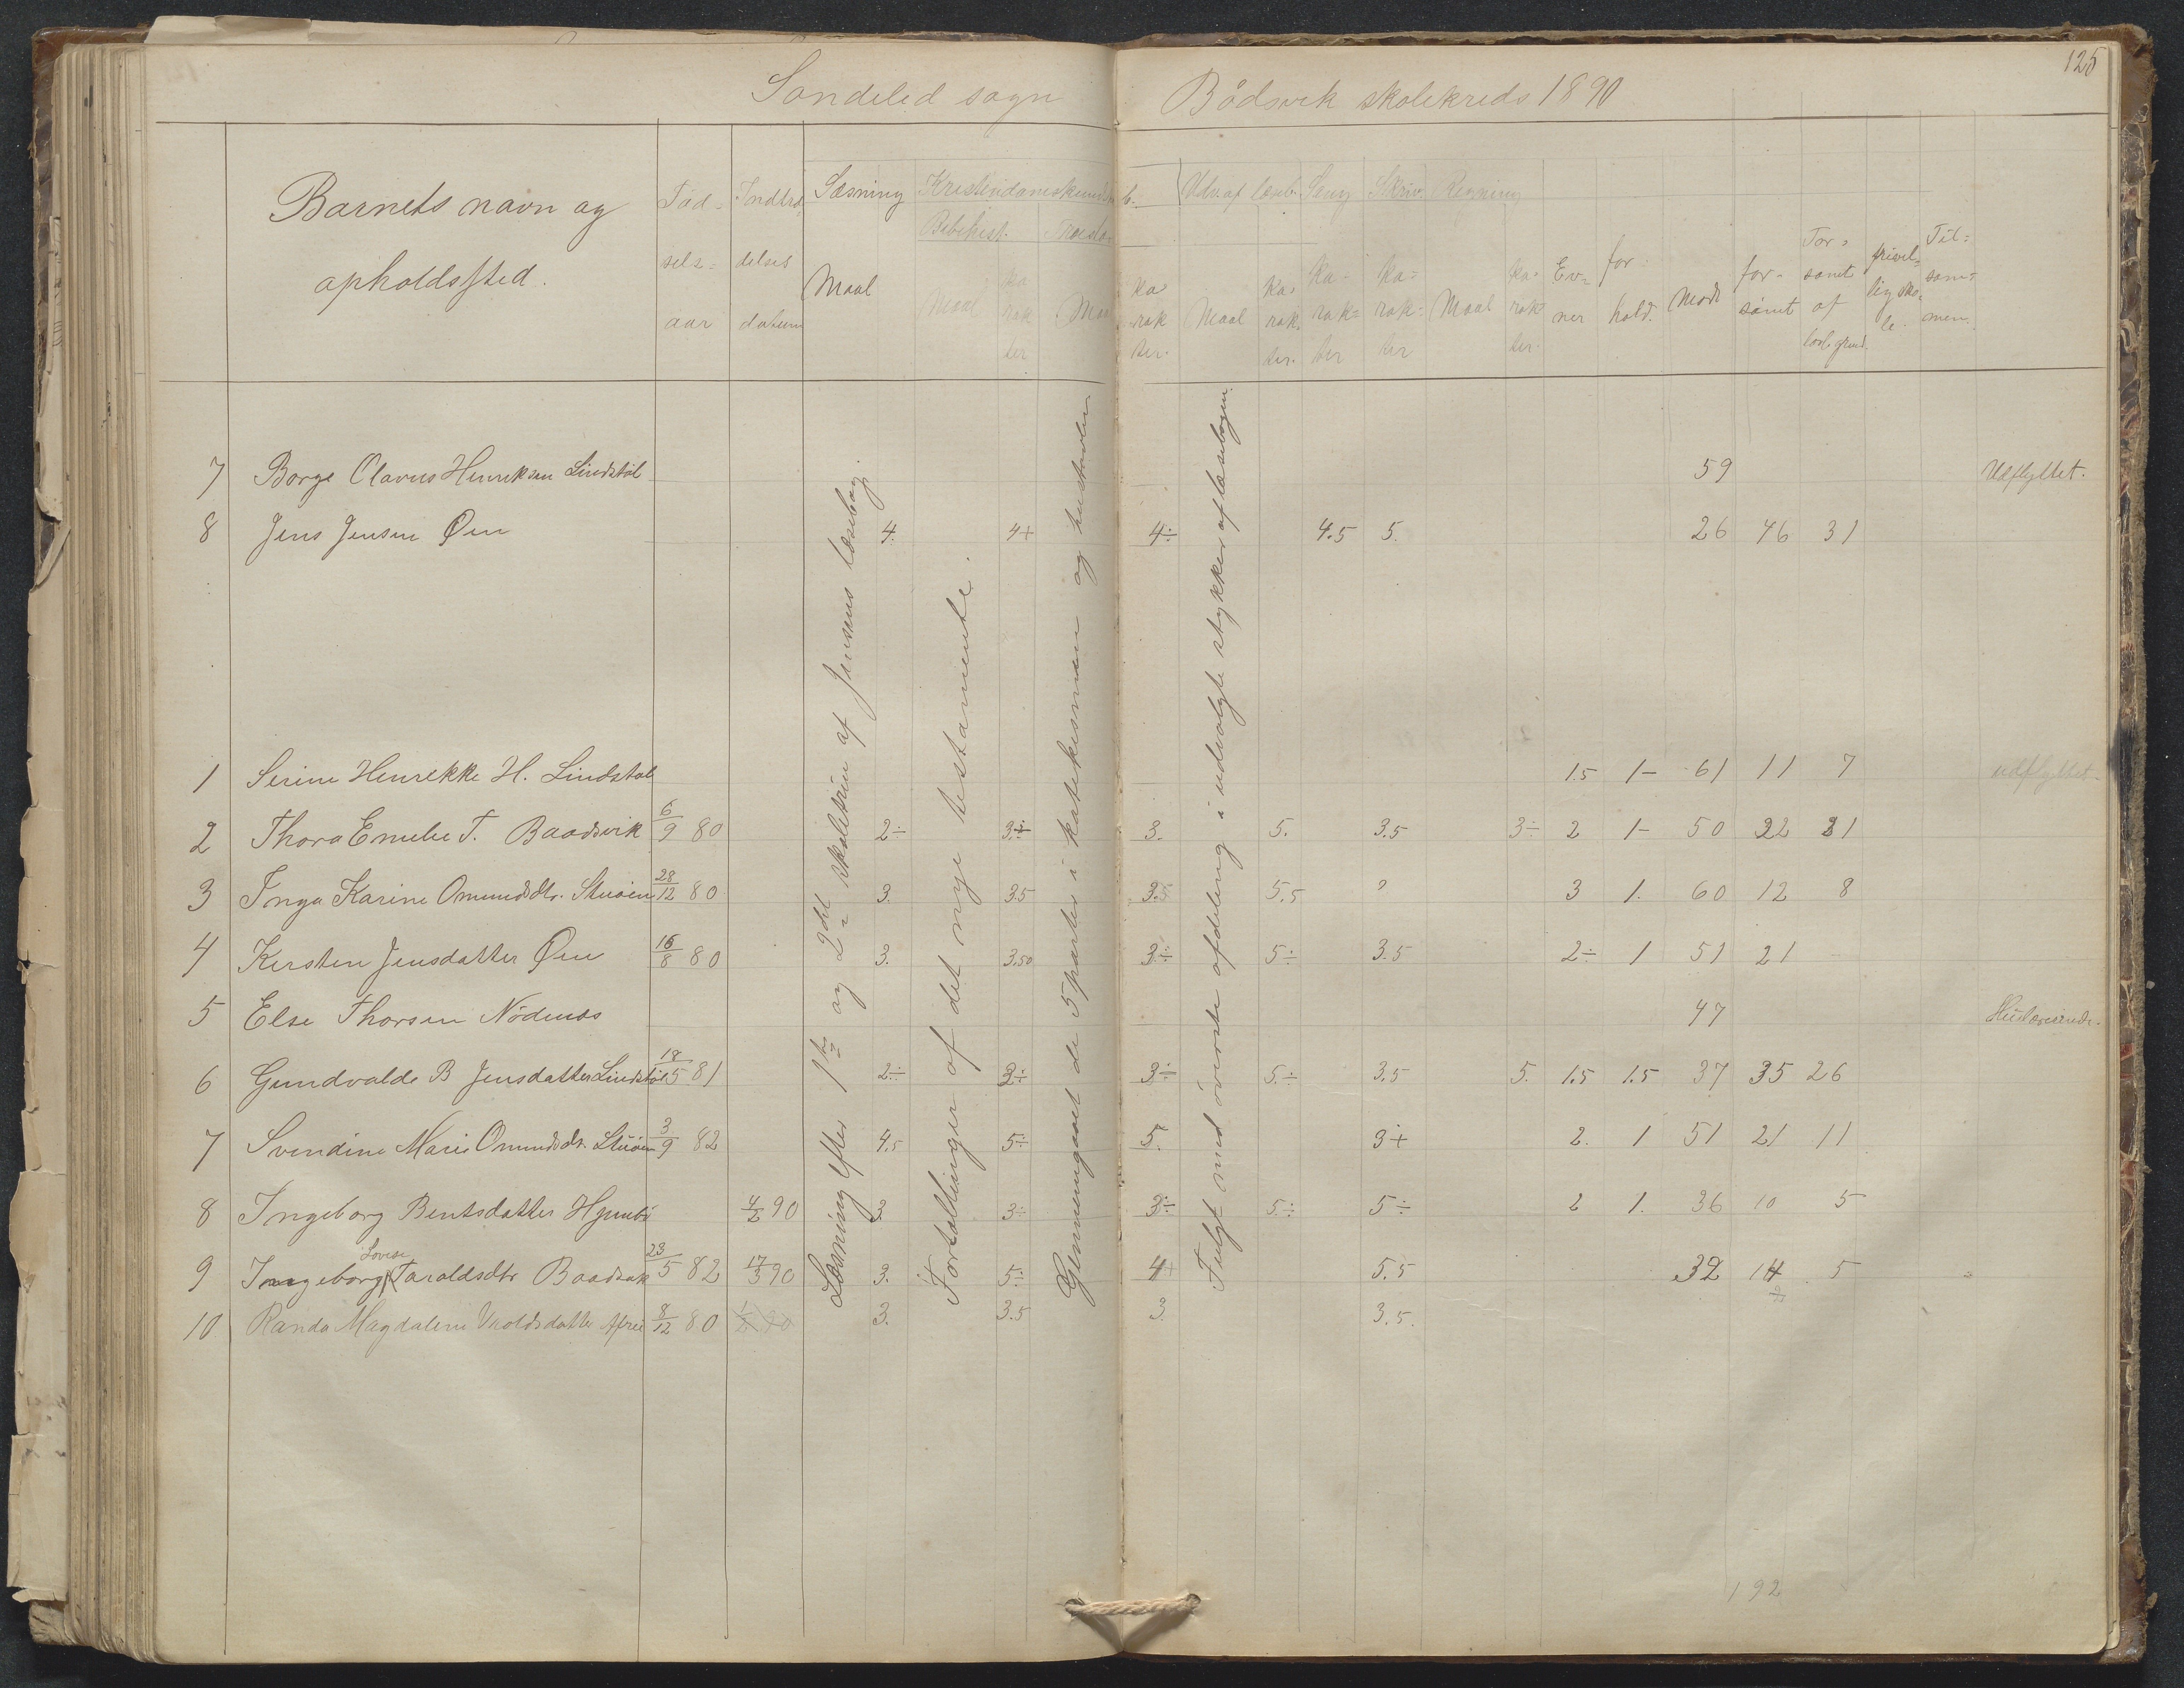 125
Søndeled sogn Bådsvik skolekreds 1890
Barnets navn og opholdssted.
Fødselsaar
Indtrædelses datum
Læsning
Maal
Kristendomskundsk
Bibelhist.
Maal
karakter
Troeslæ
karakter.
Udv. af læseb.
Maal
karakter.
Sang
karakter
Skriv.
karakter
Regning
Maal
karakter.
Evner
forhold.
Mødt
forsømt
Forsømt af lovl. grund.
frivillig skole.
Tilsammen.
7 Borge Olavus Henriksen Lindstøl 59 Udflyttet.
8 Jens Jensen Øen 4. 4+ 4÷ 4.5 5. 26 46 31
1 Serine Henrekke H. Lindstøl 1.5 1- 61 11 7 udflyttet
2 Thora Emelie T. Baadsvik 6/9 80 2÷ 3÷ 3. 5. 3.5 3÷ 2 1- 50 22 21
3 Inga Karine Omundsdtr. Stuøen 28/12 80 3. 3.5 3.5 5.5 ? 3 1. 60 12 8
4 Kersten Jensdatter Øen 16/8 80 3. 3.50 3÷ 5÷ 3.5 2÷ 1 51 21
5 Else Thorsen Nødenæs 47
6 Gundvalde B Jensdatter Lindstøl 18/5 81 2÷ 3÷ 3÷ 5÷ 3.5 5. 1.5 1.5 37 35 26
7 Svendine Marie Omundsdtr. Stuøen 3/9 82 4.5 5÷ 5. 3+ 2. 1 51 21 11
8 Ingeborg Bentsdatter 4/2 90 3 3÷ 3÷ 5÷ 5÷ 2 1. 36 10 5
9 Ingeborg Lovise Taraldsdtr Baadsvik 23/5 82 17/3 90 3. 5÷ 4+ 5.5 32 14 5
10 Randa Magdalene 8/12 80 3. 3.5 3 3.5.
Læsning efter 1ste og 2det skoletrin af Jensens læsebog.
Fortællinger af det nye testamente.
Gjennemgaaet de 5 parter i katekismen og hustavlen
Fulgt med øverste afdeling i udvalgte stykker af læsebogen.
192